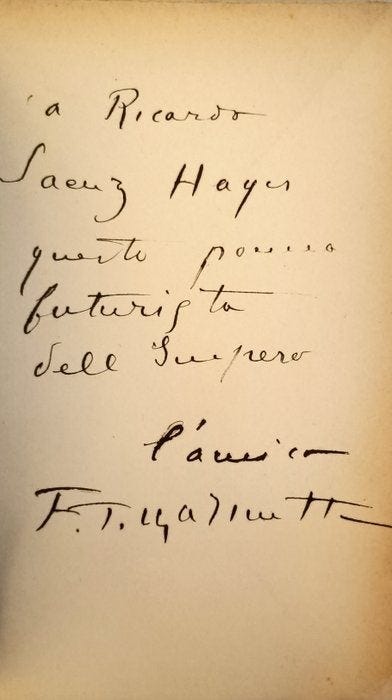 a Ricardo
Saenz Hayes
questo poema
futurista
dell Impero
l'amico
F. T. Marinetti